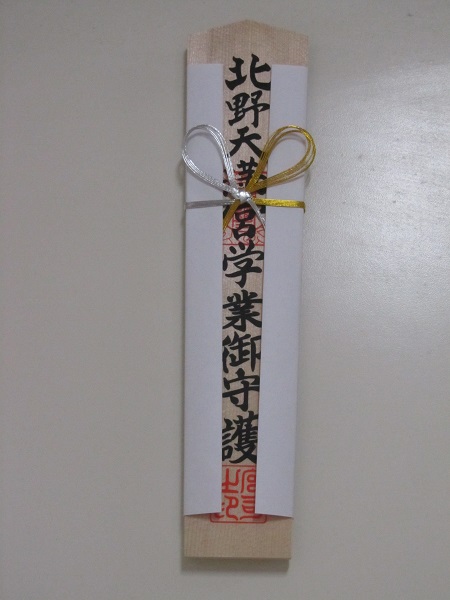 北野天満宮学業御守護